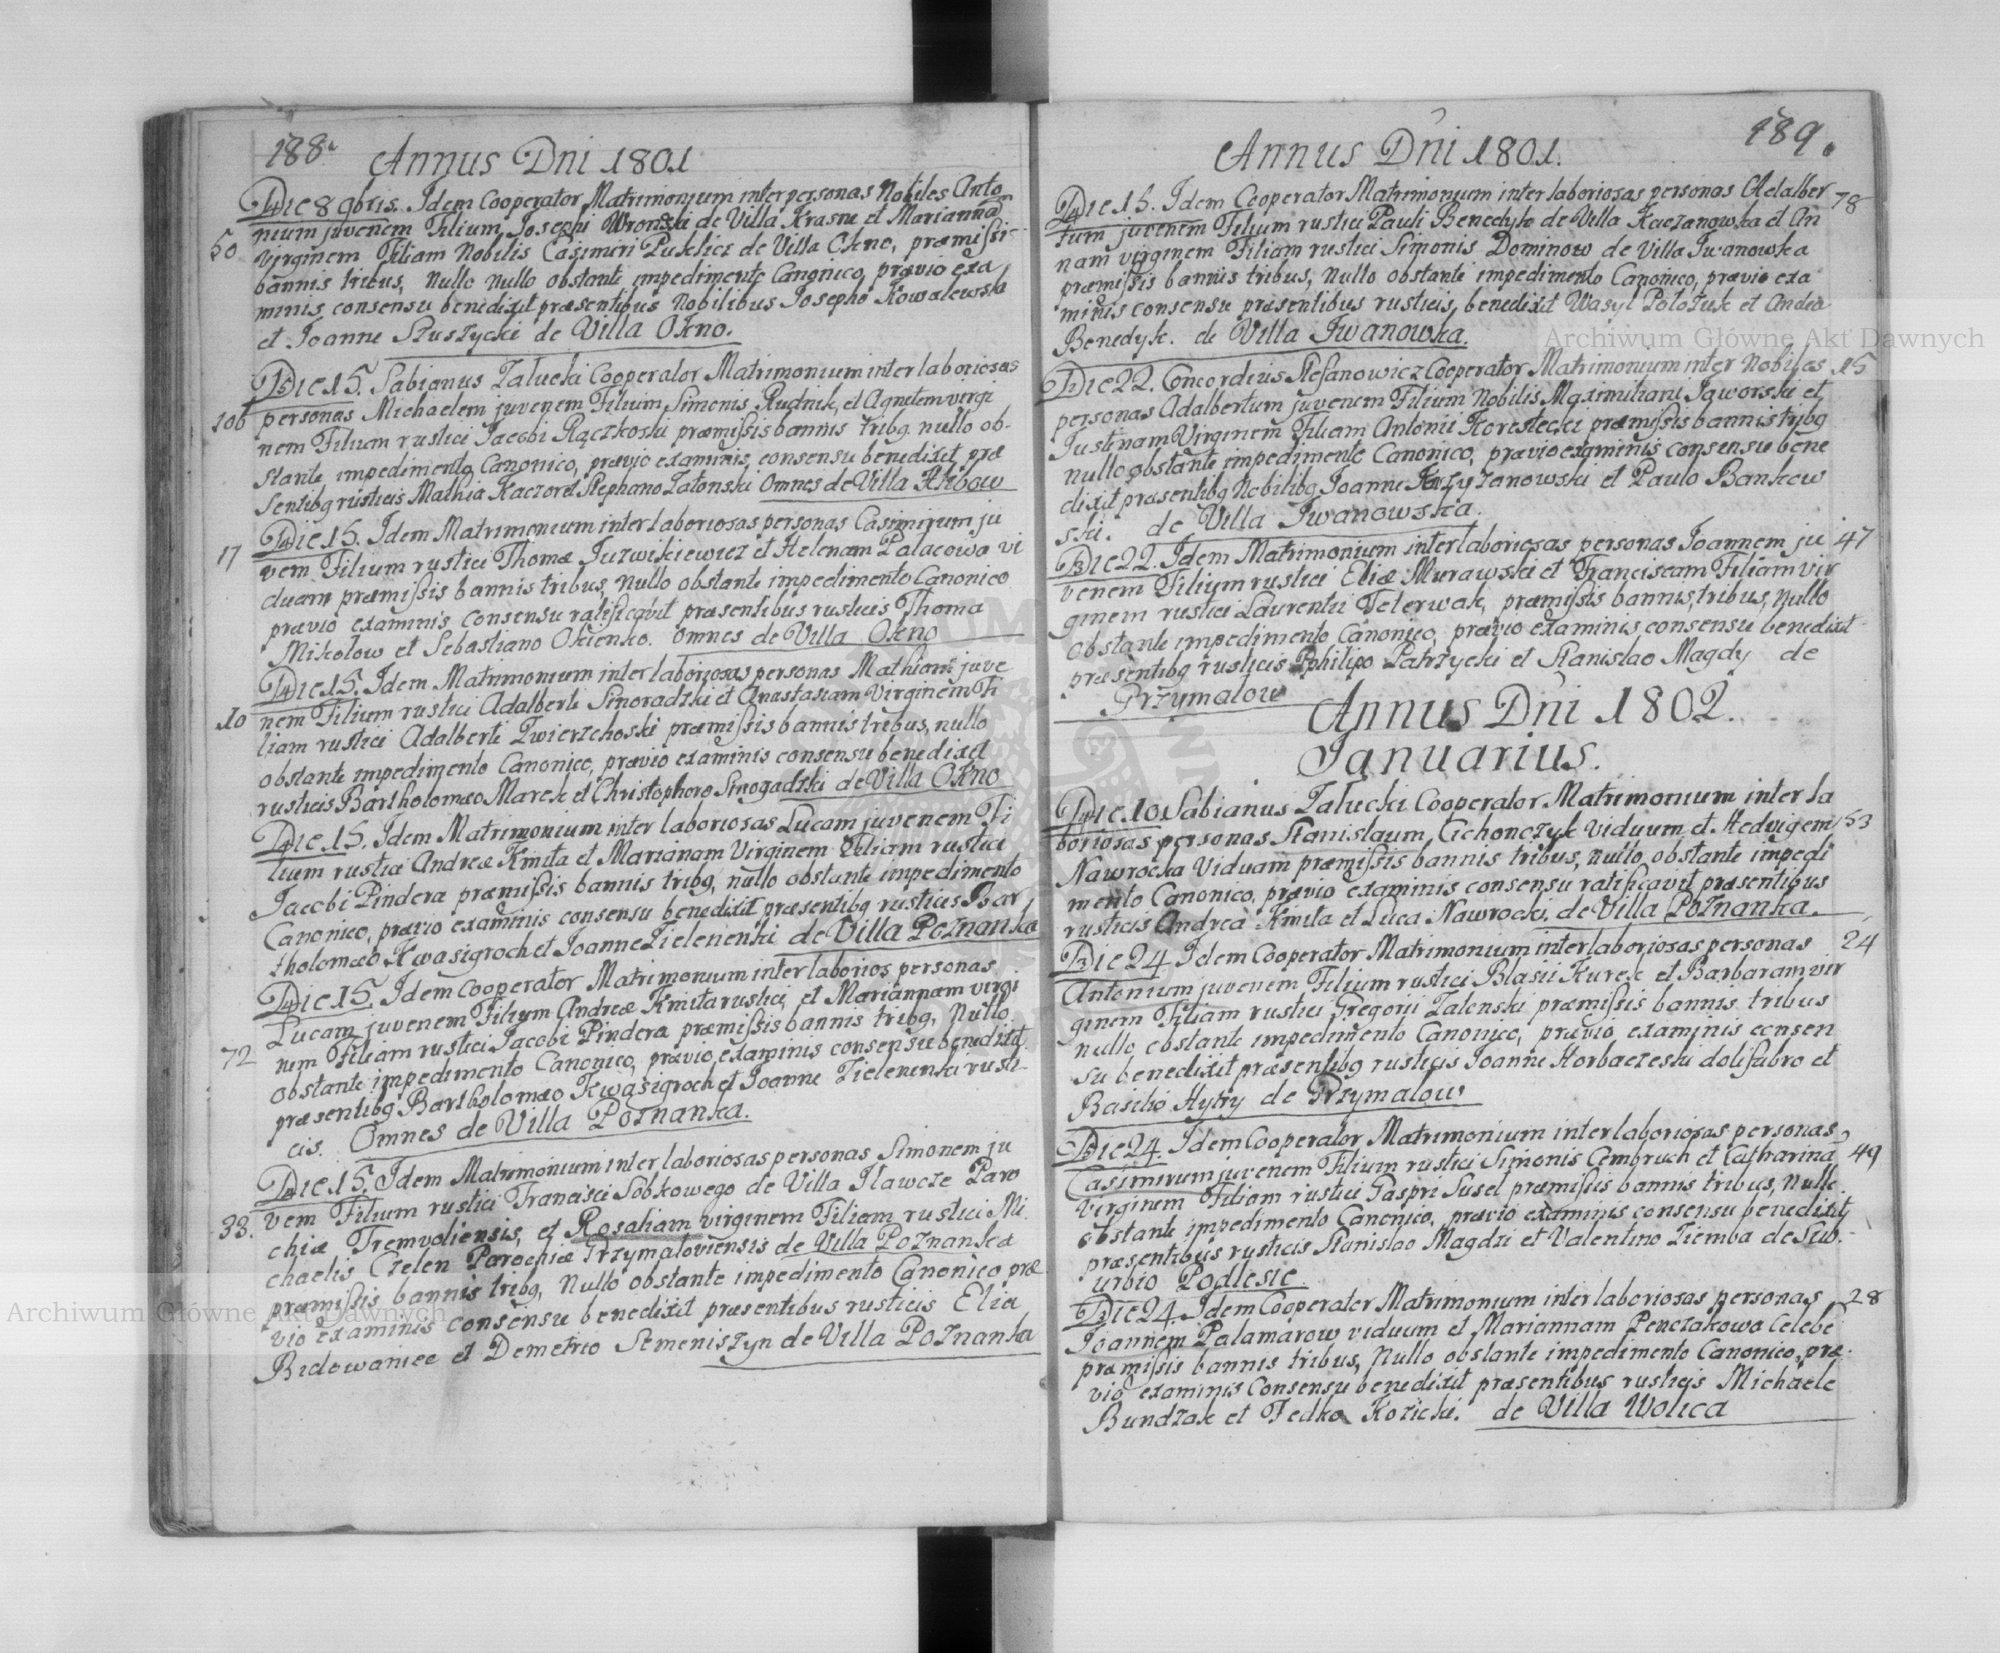 188.
Annus Dni 1801
Die 8 9bris. Idem Cooperator Matrimonium inter personas Nobiles Anto
nium juvenem Filium Josephi Wronski de Villa Krasne et Mariannam
50
Virginem Filiam Nobilis Casimiri Puklicz de Villa Okno, præmissi-
bannis tribus, Nullo Nullo obstante impedimento Canonico, prævio exa
minis consensu benedixit præsentibus Nobilibus Josepho Kowalewski
et Joanne Stuszycki de Villa Okno.
Die 15. Fabianus Załucki Cooperator Matrimonium inter laboriosas
106 personas Michaelem juvenem Filium Simonis Rudnik, et Agnetem virgi
nem Filiam rustici Jacobi Rączkoski præmissis bannis tribq nullo ob-
stante impedimento Canonico, prævio examinis consensu benedixit præ
sentibq rusticis Mathia Kaczor et Stephano Zatonski Omnes de Villa
Die 15. Idem Matrimonium inter laboriosas personas Casimirum ju
17
vem Filium rustici Thomæ Juzwikiewicz et Helenam Palacowa vi
duam præmissis bannis tribus, nullo obstante impedimento Canonico
prævio examinis consensu ratificavit præsentibus rusticis Thoma
Mikolow et Sebastiano Okienko. Omnes de Villa Okno
Die 15. Idem Matrimonium inter laboriosas personas Mathiam juve
10 nem Filium rustici Adalberti Sinoradzki et Anastasiam Virginem Fi
liam rustici Adalberti Zwierzchoski præmissis bannis tribus, nullo
obstante impedimento Canonico, prævio examinis consensu benedixit
rusticis Bartholomæo Marek et Christophoro Sinogadzki de Villa Okno
Die 15. Idem Matrimonium inter laboriosas Lucam juvenem Fi
lium rustici Andreæ Kmita et Marianam Virginem Filiam rustici
Jacobi Pindera præmissis bannis tribq, nullo obstante impedimento
Canonico, prævio examinis consensu benedixit præsentibq rusticis Bar
tholomæo Kwasigroch et Joanne Zielenenki de Villa Poznanka
Die 15. Idem Cooperator Matrimonium inter laborios personas
Lucam juvenem Filium Andreæ Kmita rustici, et Mariannam virgi
72 nem Filiam rustici Jacobi Pindera præmissis bannis tribq, Nullo
obstante impedimento Canonico, prævio examinis consensu benedixit
præsentibq Bartholomæo Kwasigroch et Joanne Zielenenki rusti-
cis. Omnes de Villa Poznanka.
Die 15. Idem Matrimonium inter laboriosas personas Simonem ju
33. vem Filium rustici Francisci Sobkowego de Villa Iławcze Paro
chiæ Tremvoliensis, et Rosaliam virginem Filiam rustici Mi
chaelis Czelen Parochiæ Przymaloviensis de Villa Poznanka
præmissis bannis tribq, Nullo obstante impedimento Canonico præ
vio examinis consensu benedixit præsentibus rusticis Elia
Bidowaniec et Demetrio Semeniszyn de Villa Poznanka
189.
Annus Dni 1801.
Die 15. Idem Cooperator Matrimonium inter laboriosas personas Adalber 78
tum juvenem Filium rustici Pauli Benedyk de Villa Kaczanowka et An
nam virginem Filiam rustici Simonis Dominow de Villa Iwanowka
præmissis bannis tribus, Nullo obstante impedimento Canonico, prævio exa
minis consensu præsentibus rusticis, benedixit Wasyl Położuk et Andrea
Benedyk. de Villa Iwanowka.
Die 22. Concordius Stefanowicz Cooperator Matrimonium inter Nobiles 15
personas Adalbertum juvenem Filium Nobilis Maximiliani Jaworski et
Justinam Virginem Filiam Antonii Korestecki præmissis bannis tribq
nullo obstante impedimento Canonico, prævio examinis consensu bene
dixit præsentibq Nobilibq Joanne Krzyzanowski et Paulo Bankow
ski. de Villa Iwanowska.
Die 22. Idem Matrimonium inter laboriosas personas Joannem ju 47
venem Filium rustici Eliæ Murawski et Franciscam Filiam vir
ginem rustici Laurentii Teterwak, præmissis bannis, tribus, Nullo
obstante impedimento Canonico, prævio examinis consensu benedixit-
præsentibq rusticis Philipo Patrzycki et Stanislao Magdy de
Przymalow
Annus Dni 1802.
Januarius.
Die 10 Fabianus Załucki Cooperator Matrimonium inter la
boriosas personas Stanislaum Cichonczyk Viduum et Hedvigem 53
Nawrocka Viduam præmissis bannis tribus, nullo obstante impedi
mento Canonico, prævio examinis consensu ratificavit præsentibus
rusticis Andrea Kmita et Luca Nawrocki. de Villa Poznanka.
Die 24 Idem Cooperator Matrimonium inter laboriosas personas 24
Antonium juvenem Filium rustici Blasii Kurek et Barbaram vir
ginem Filiam rustici Gregorii Zalenski præmissis bannis tribus
nullo obstante impedimento Canonico, prævio examinis consen
su benedixit præsentibq rusticis Joanne Horbaczeski dolifabro et
Basilio Hytry de Przymalow
Die 24. Idem Cooperator Matrimonium inter laboriosas personas
Casimirum juvenem Filium rustici Simonis Cembruch et Catharina 49
Virginem Filiam rustici Gaspri Susel præmissis bannis tribus, Nullo
obstante impedimento Canonico, prævio examinis consensu benedixit
præsentibus rusticis Stanislao Magdzi et Valentino Ziemba de Sub.-
urbio Podlesie.
Die 24. Idem Cooperator Matrimonium inter laboriosas personas 28
Joannem Palamarow viduum et Mariannam Penczakowa Celebe
præmissis bannis tribus, Nullo obstante impedimento Canonico, præ-
vio examinis consensu benedixit præsentibus rusticis Michaele
Bundzak et Fedko Kozicki. de Villa Wolica
Archiwum Główne Akt Dawnych
Archiwum Główne Akt Dawnych